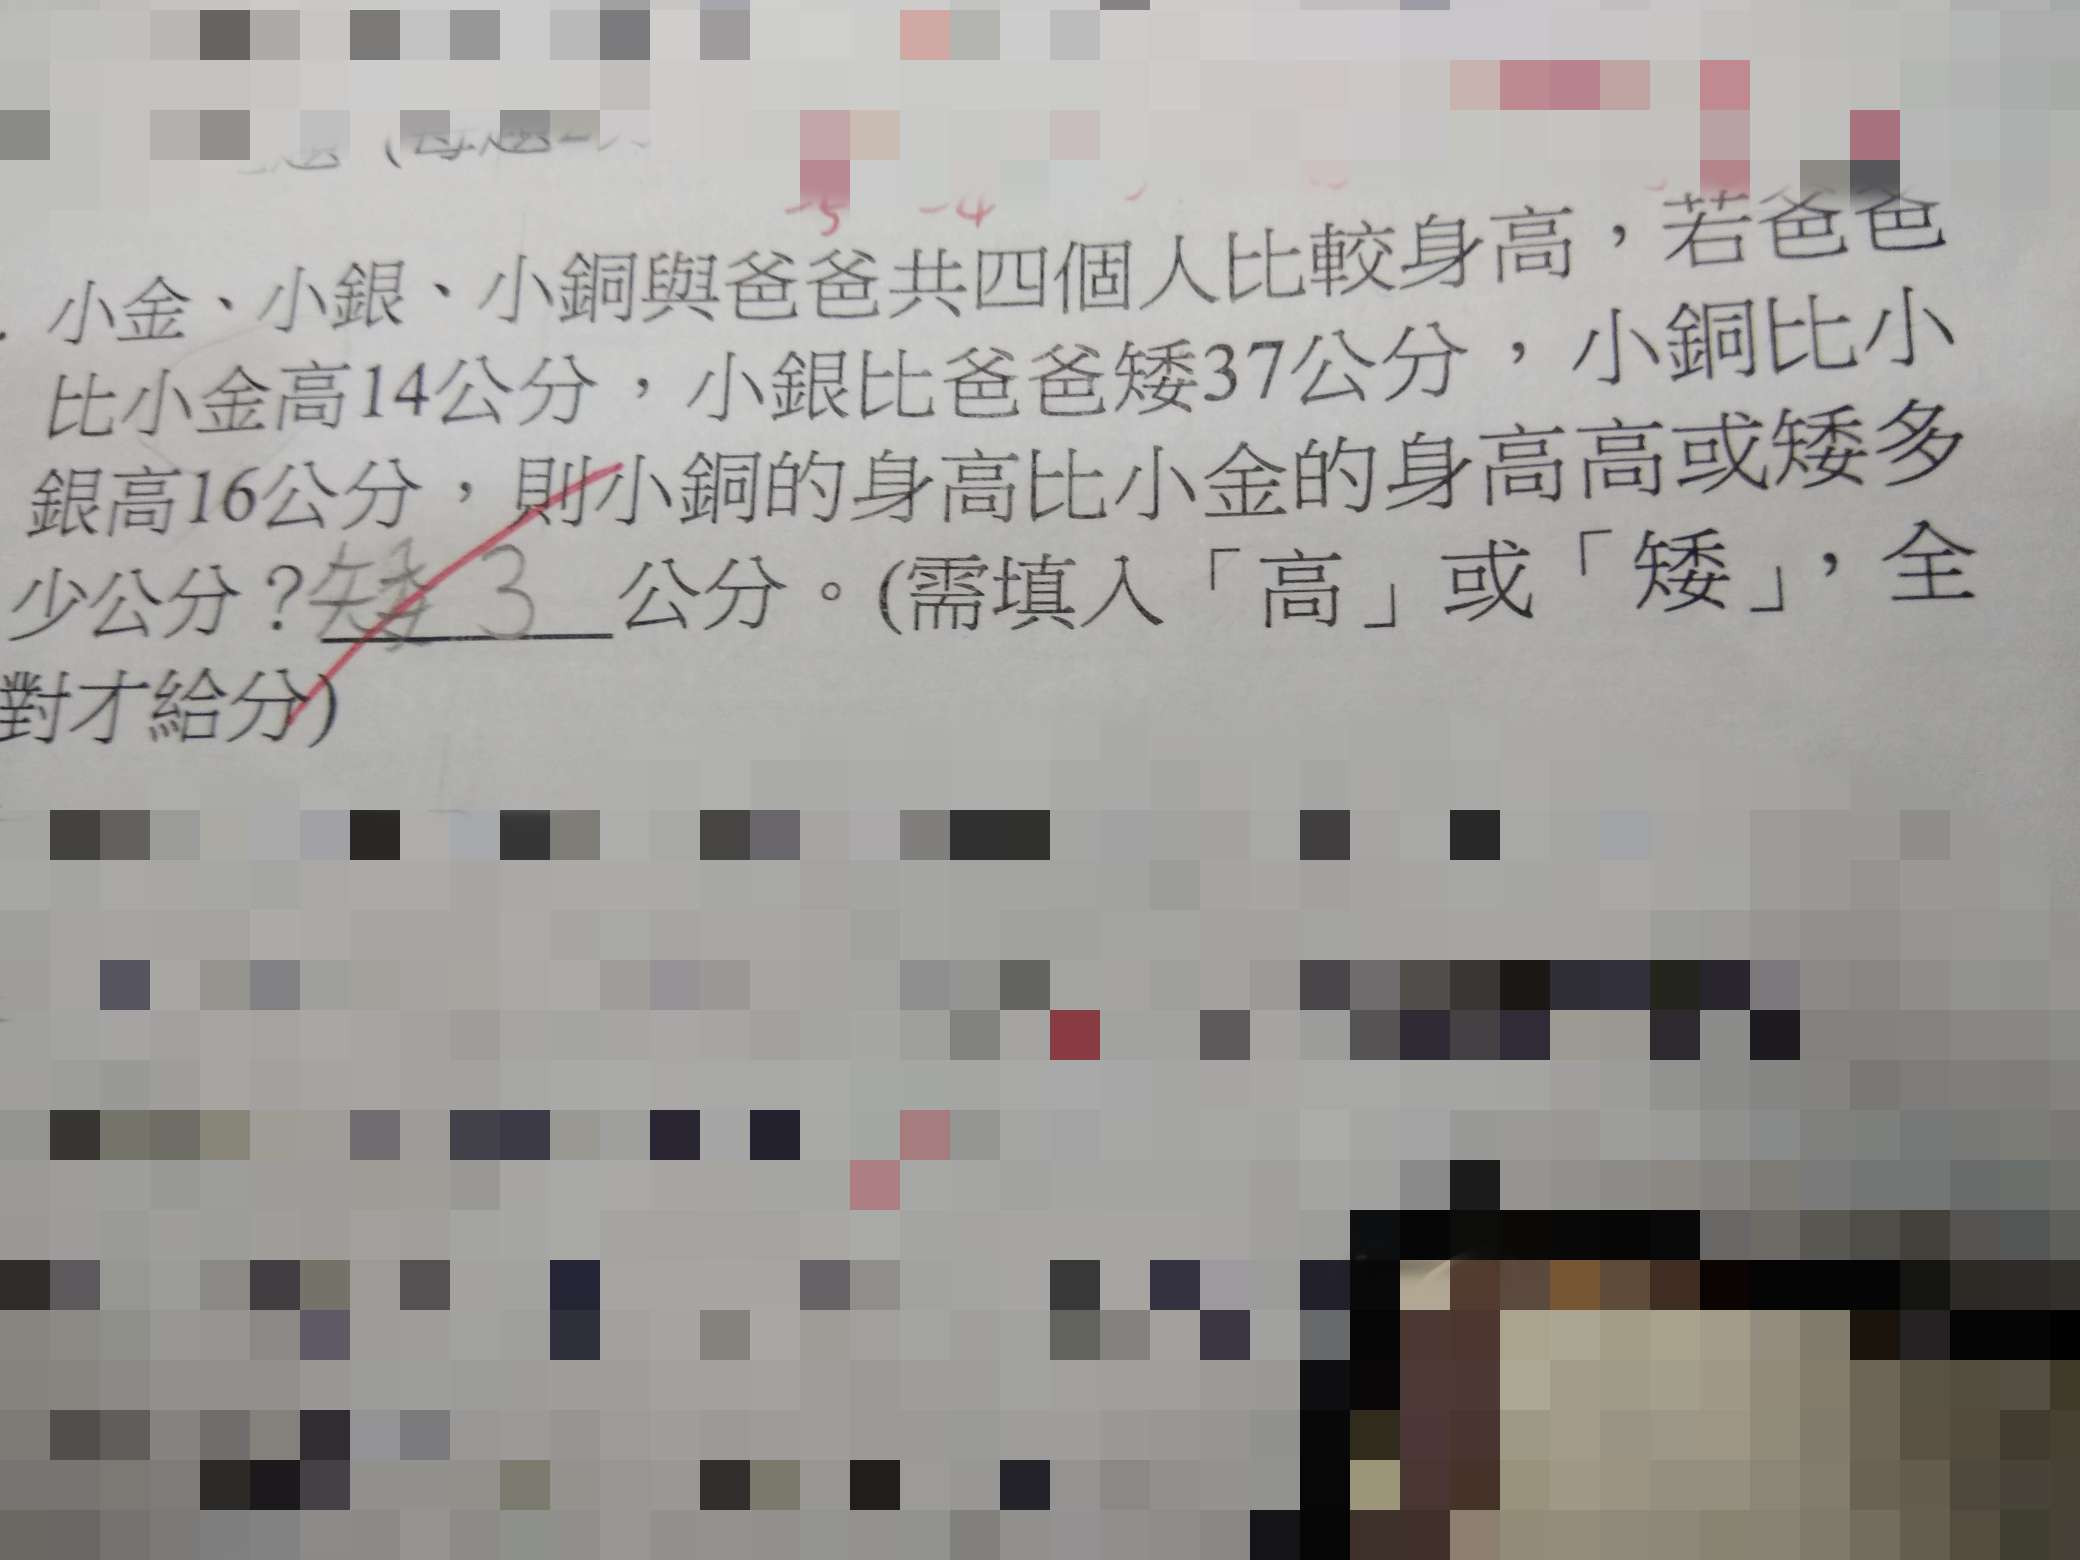 -5 -4
小金、小銀、小銅與爸爸共四個人比較身高，若爸爸
比小金高14公分，小銀比爸爸矮37公分，小銅比小
銀高16公分，則小銅的身高比小金的身高高或矮多
少公分？矮 3 公分。(需填入「高」或「矮」，全
對才給分)